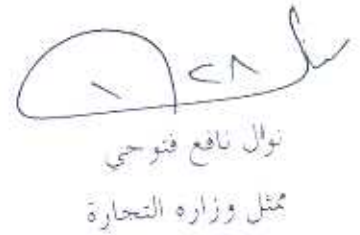 نوال نافع فتوحي
ممثل وزاره التجارة